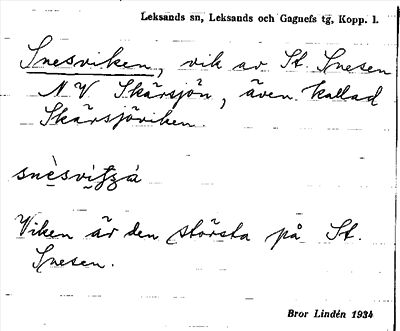 Leksands sn, Leksands och Gagnefs tg, Kopp. l.
Snesviken, vik av St. Snesen
NV Skärsjön, även kallad
Skärsjöviken.
Viken är den största på St.
Snesen.
Bror Lindén 1934